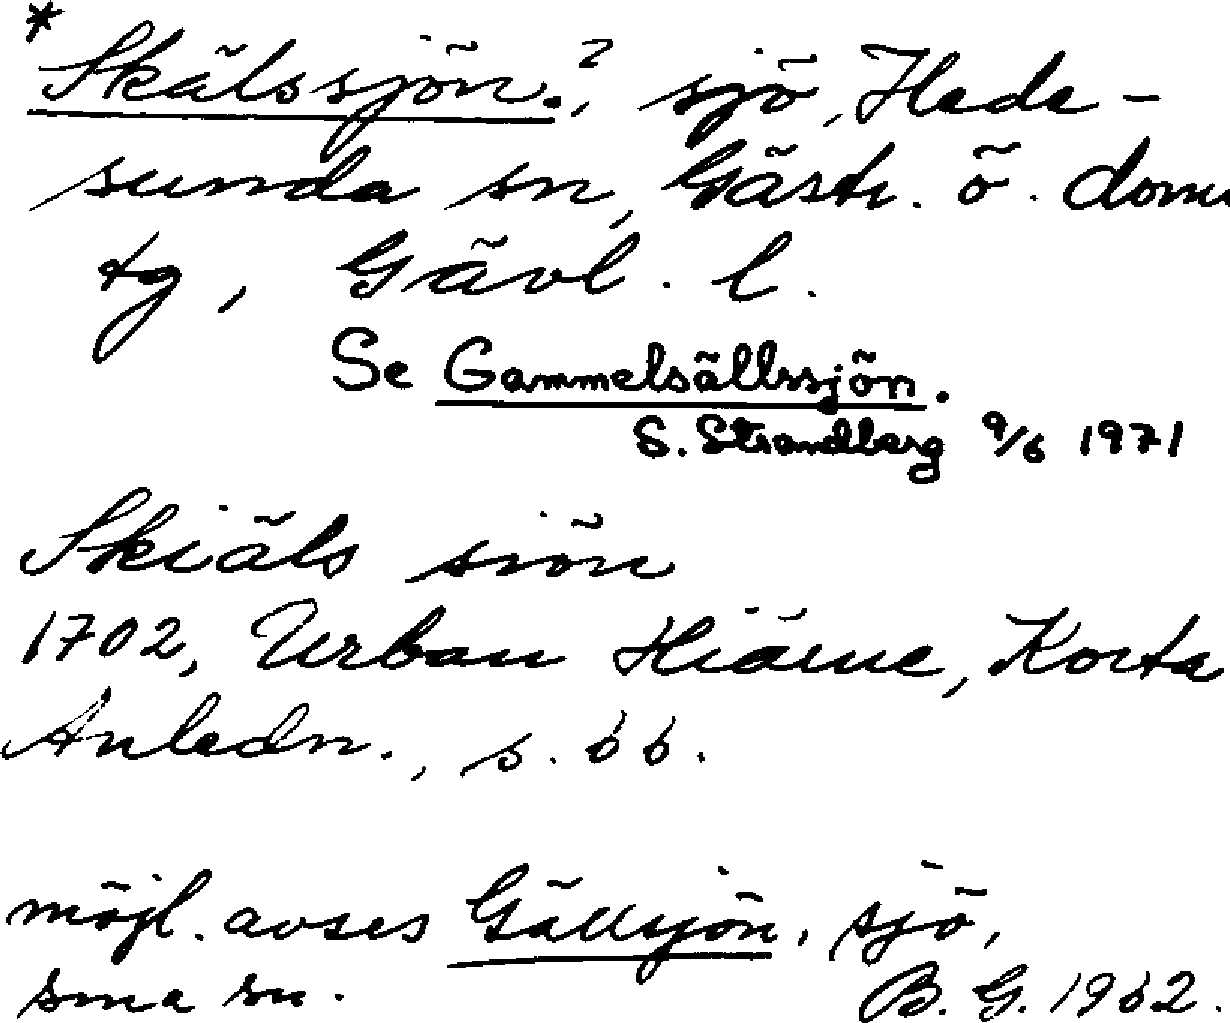 *Skälssjön.?, sjö, Hede-
sunda sn, Gästr. ö. doms
tg, Gävl. l.
Se Gammelsällssjön.
S. Strandberg 9/6 1971
Skiäls siön
1702, Urban Hiärne, Korta
Anledn., s. 66.
möjl. avses Gällsjön, sjö,
sma sn. B. G. 1962.